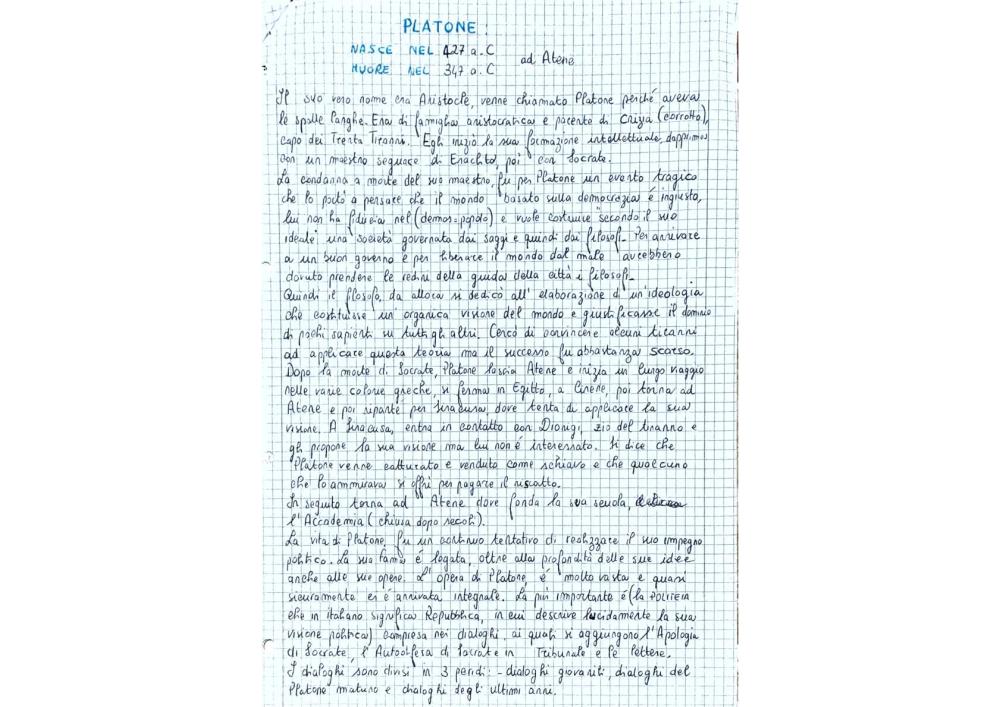 PLATONE :
NASCE NEL 427 a.C
ad Atene
MUORE NEL 347 a.C
Il suo vero nome era Aristocle, venne chiamato Platone perché aveva
le spalle larghe. Era di famiglia aristocratica e parente di Crizia (corrotto),
capo dei Trenta Tiranni. Egli iniziò la sua formazione intellettuale, dapprima
con un maestro seguace di Eraclito, poi con Socrate.
La condanna a morte del suo maestro, fu per Platone un evento tragico
che lo portò a pensare che il mondo basato sulla democrazia è ingiusto,
lui non ha fiducia nel (demos=popolo) e vuole costruire "secondo il suo
ideale" una società governata dai saggi e quindi dai filosofi. Per arrivare
a un buon governo e per liberare il mondo dal male avrebbero
dovuto prendere le redini della guida della città i filosofi.
Quindi il filosofo, da allora si dedicò all' elaborazione d' un'ideologia
che costituisse un' organica visione del mondo e giustificasse il dominio
di pochi sapienti su tutti gli altri. Cercò di convincere alcuni tiranni
ad applicare questa teoria ma il successo fu abbastanza scarso.
Dopo la morte di Socrate, Platone lascia Atene e inizia un lungo viaggio
nelle varie colonie greche, si ferma in Egitto, a Cirene, poi torna ad
Atene e poi riparte per Siracusa, dove tenta di applicare la sua
visione. A Siracusa, entra in contatto con Dionigi, zio del tiranno e
gli propone la sua visione ma lui non è interessato. Si dice che
Platone venne catturato e venduto come schiavo e che qualcuno
che lo ammirava si offrì per pagare il riscatto.
In seguito torna ad Atene dove fonda la sua scuola,
l'Accademia ( chiusa dopo secoli ).
La vita di Platone, fu un continuo tentativo di realizzare il suo impegno
politico. La sua fama è legata, oltre alla profondità delle sue idee
anche alle sue opere. L' opera di Platone, è molto vasta e quasi
sicuramente ci è arrivata integrale. La più importante è (la POLITEIA
che in italiano significa Repubblica, in cui descrive lucidamente la sua
visione politica) compresa nei dialoghi, ai quali si aggiungono l'Apologia
di Socrate, l' Autodifesa di Socrate in Tribunale e le lettere.
I dialoghi sono divisi in 3 periodi: - dialoghi giovanili, dialoghi del
Platone maturo e dialoghi degli ultimi anni.